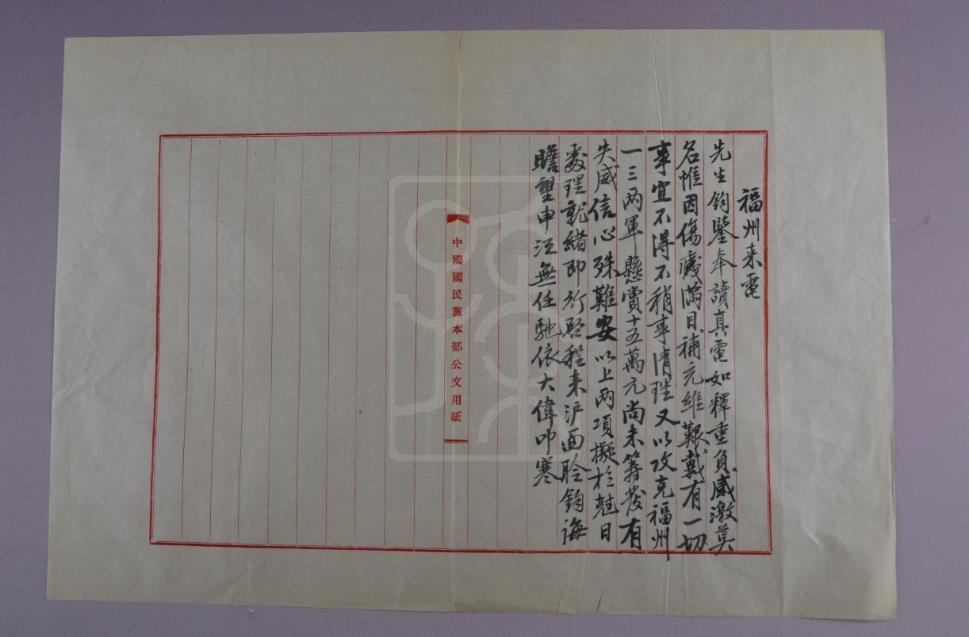 福州来電
先生鈞鑒奉讀真電如釋重負感激莫
名惟因傷殘滿目補充維艱載有一切
事宜不得不稍事清理又以攻克福州
一三两軍懸賞十五萬元尚未籌發有
失威信心殊難安以上两項擬於尅日
處理就緒即行啓程来沪面聆鈞誨
瞻望申江無任馳依大偉叩寒
中國國民黨本部公文用紙